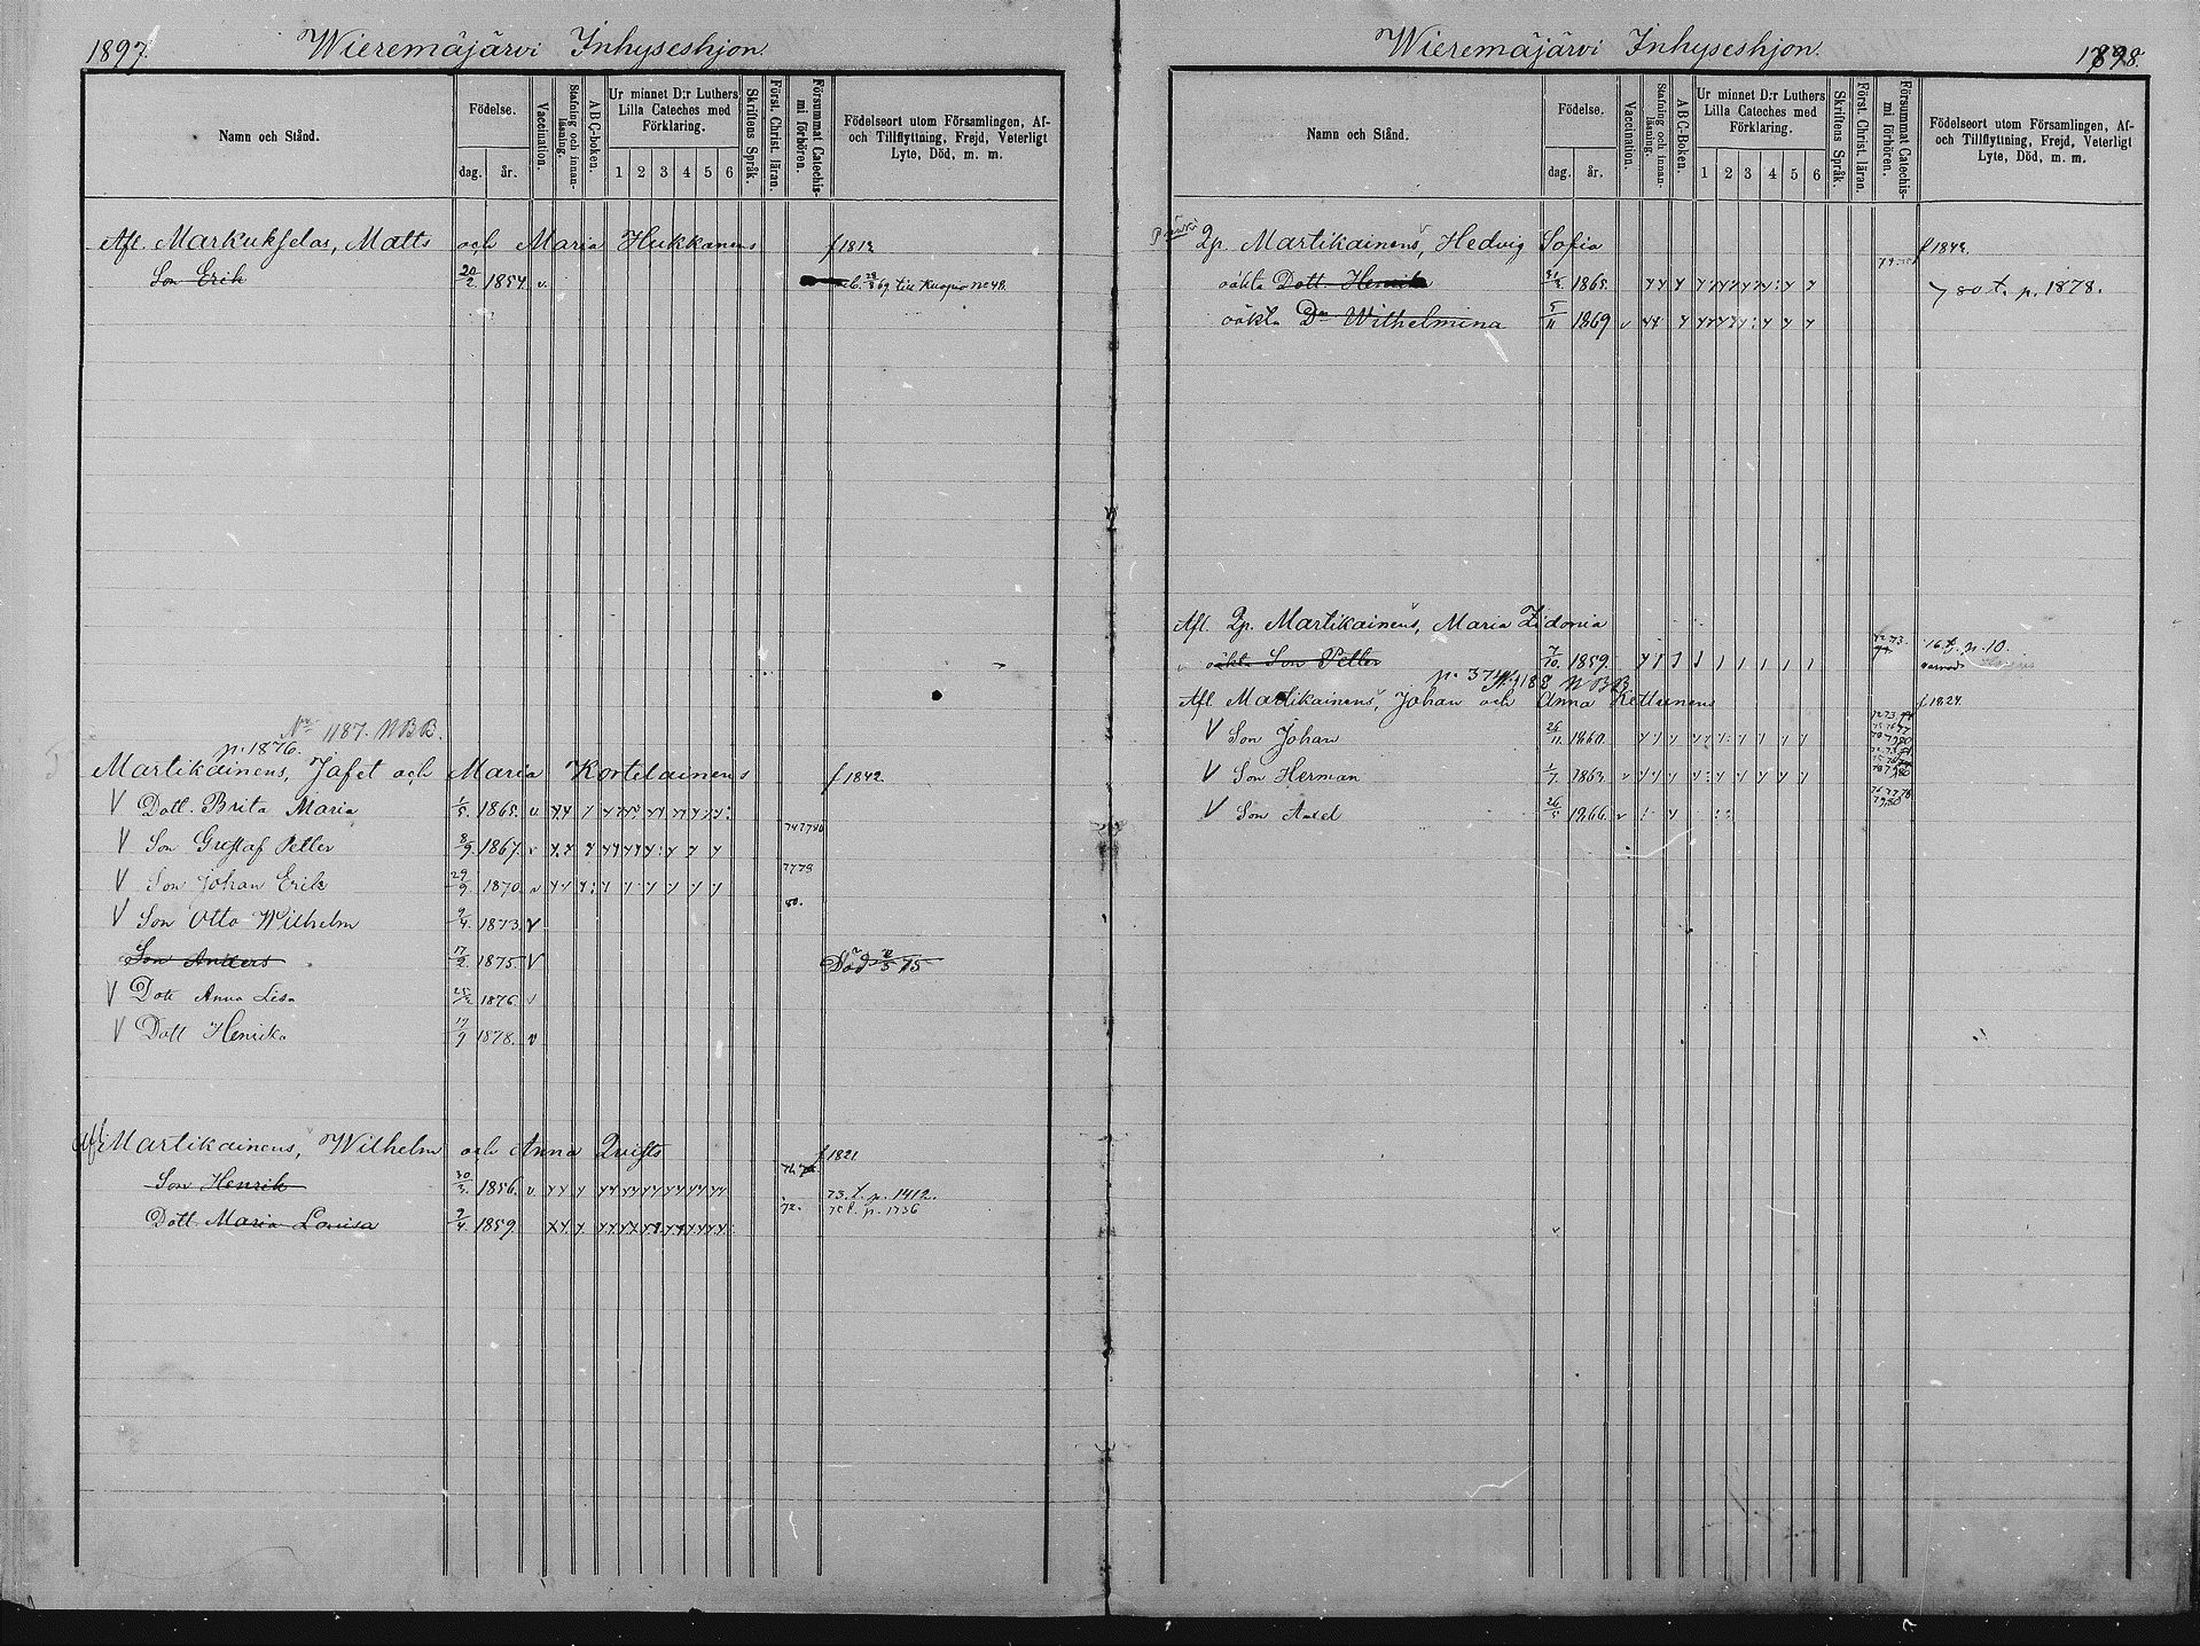 1897.
Wieremäjärvi Inhyseshjon.
Namn och Stånd.
Födelse.
dag. år.
Vaccination.
Stafning och innanläsning.
ABC-boken.
Ur minnet D:r Luthers Lilla Cateches med Förklaring.
1 2 3 4 5 6
Skriftens Språk.
Först. Christ. läran.
Försummat Catechismi förhören.
Födelseort utom Församlingen, Af- och Tillflyttning, Frejd, Veterligt Lyte, Död, m. m.
Afl. Markukselas, Matts och Maria Hukkanens f 1812
Son Erik 20/2. 1854. v. till Kuopio No 48.
No 1187. NBB.
p. 1876.
Martikainens, Jafet och Maria Kortelainens f 1842
V Dott. Brita Maria 1/5. 1865. v
V Son Gustaf Petter 8/9. 1867. v 747780
V Son Johan Erik 29/9. 1870. v 7779
V Son Otto Wilhelm 9/4. 1873. V 80.
Son Anders 17/2. 1875. V Död 75
V Dott Anna Lisa 25/2 1876. v
V Dott Henrika 17/9 1878. v
Afl. Martikainens, Wilhelm och Anna Qvists f 1821
Son Henrik 30/3. 1856. v. 73. t. p. 1412.
Dott Maria Lovisa 9/4. 1859. 72. 75 t. p. 1736
Wieremäjärvi Inhyseshjon.
1898.
Namn och Stånd.
Födelse.
dag. år.
Vaccination.
Stafning och innanläsning.
ABC-Boken.
Ur minnet D:r Luthers Lilla Cateches med Förklaring.
1 2 3 4 5 6
Skriftens Språk.
Först. Christ. läran.
Försummat Catechismi förhören.
Födelseort utom Församlingen, Af- och Tillflyttning, Frejd, Veterligt Lyte, Död, m. m.
Qp. Martikainens, Hedvig Sofia f 1842.
oäkta Dott. Henrika 31/3. 1865. 79. 80 t. p. 1878.
oäkta Dr Wilhelmina 5/11 1869 v
Afl. Qp. Martikainens, Maria Zidonia
oäkta Son Petter 7/10. 1859. 7273. 76 t. p. 10.
p. 374 1188 NBB
Afl Martikainens, Johan och Anna Kettunens f 1824.
V Son Johan 26/11. 1860.
V Son Herman 1/7. 1863. v
V Son Axel 26/5 1866. v 767778 79,80